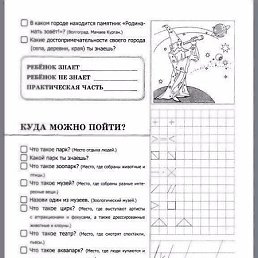 В каком городе находится памятник «Родина-
мать зовёт!»? (Волгоград. Мамаев Курган.)
Какие достопримечательности своего города
(села, деревни, края) ты знаешь?
РЕБЁНОК ЗНАЕТ
РЕБЁНОК НЕ ЗНАЕТ
ПРАКТИЧЕСКАЯ ЧАСТЬ
КУДА МОЖНО ПОЙТИ?
Что такое парк? (Место отдыха людей.)
Какой парк ты знаешь?
Что такое зоопарк? (Место, где собраны животные и
птицы.)
Что такое музей? (Место, где собраны разные инте-
ресные вещи.)
Назови один из музеев. (Зоологический музей.)
Что такое цирк? (Место, где выступают артисты
с аттракционами и фокусами, а также дрессированные
животные и клоуны.)
Что такое театр? (Место, где смотрят спектакли,
пьесы.)
Что такое аквапарк? (Место, где люди купаются и